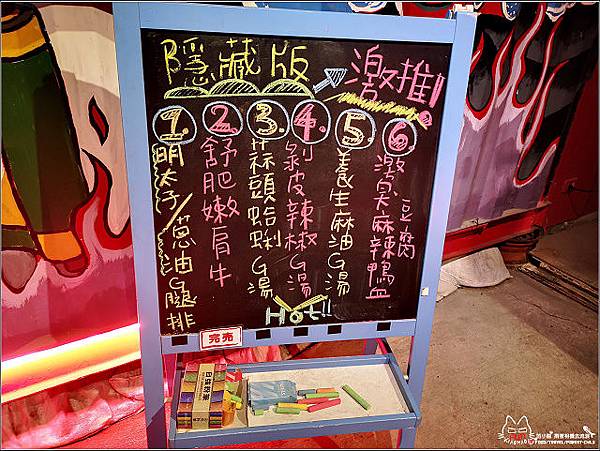 隱藏版
激推!
1. 明太子/蔥油G腿排
2. 舒肥嫩肩牛
3. 蒜頭蛤蜊G湯
4. 剝皮辣椒G湯
5. 養生麻油G湯
6. 激臭麻辣鴨血豆腐
Hot!!
完売